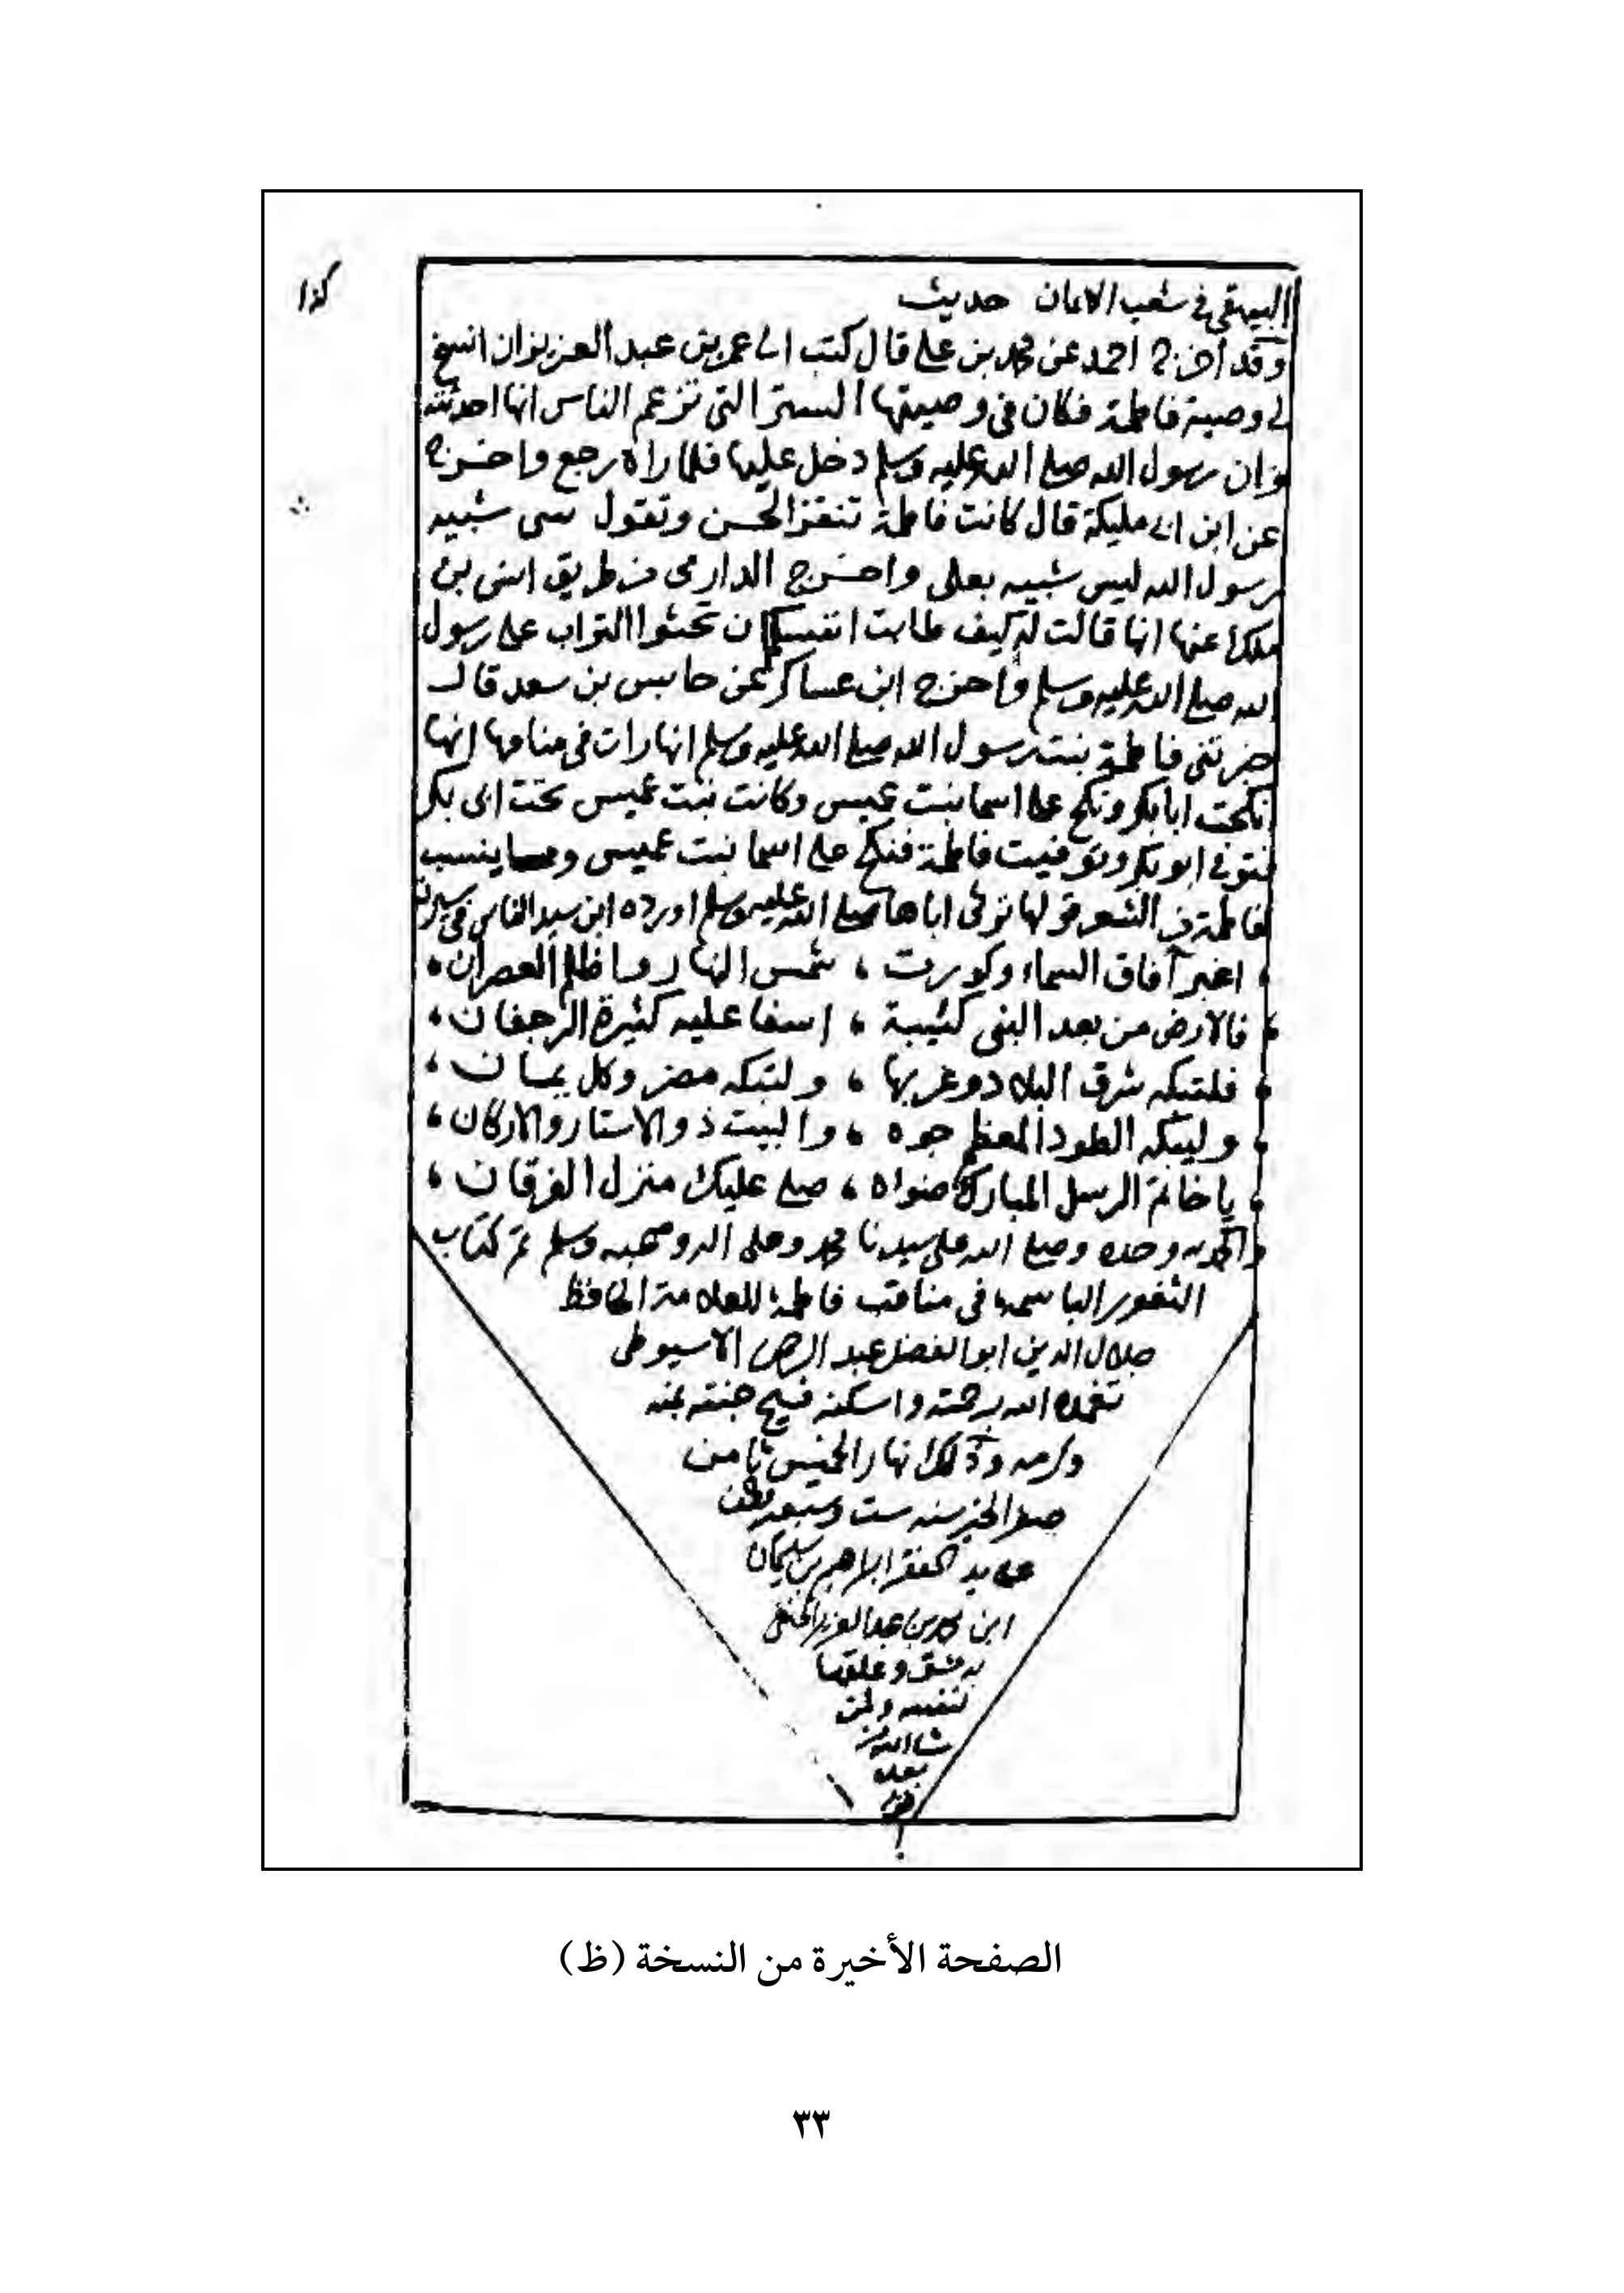 كذا
البيهقي في شعب الايمان حديث
وقد اخرج احمد عن محمد بن علي قال كتب الى عمر بن عبد العزيز ان انسخ
لي وصية فاطمة فكان في وصيتها الستر التي تزعم الناس انها احدثته
وان رسول الله صلى الله عليه وسلم دخل عليها فلما راه رجع واخرج
عن ابن ابي مليكة قال كانت فاطمة تنقز الحسن وتقول شبيه
رسول الله ليس شبيه بعلي واخرج الدارمي من طريق انس بن
ملك عنها انها قالت له كيف طابت انفسكم ان تحثوا التراب على رسول
الله صلى الله عليه وسلم واخرج ابن عساكر عن حابس بن سعد قال
خبرتني فاطمة بنت رسول الله صلى الله عليه وسلم انها رات في منامها انها
نكحت ابا بكر ونكح علي اسما بنت عميس وكانت بنت عميس تحت ابي بكر
فتوفي ابو بكر وتوفيت فاطمة فنكح علي اسما بنت عميس ومما ينسب
لفاطمة من الشعر قولها ترثي اباها صلى الله عليه وسلم اورده ابن سيد الناس في سيرته
اغبر آفاق السماء وكورت ، شمس النهار واظلم العصران ،
فالارض من بعد النبي كئيبة ، اسفا عليه كثيرة الرجفان ،
فلتبكه شرق البلاد وغربها ، ولتبكه مضر وكل يمان ،
وليبكه الطود المعظم جوه ، والبيت ذو الاستار والاركان ،
يا خاتم الرسل المبارك ضواه ، صلى عليك منزل الفرقان ،
والحمد لله وحده وصلى الله على سيدنا محمد وعلى اله وصحبه وسلم تم كتاب
الثغور الباسمة في مناقب فاطمة للعلامة الحافظ
جلال الدين ابو الفضل عبد الرحمن الاسيوطي
تغمده الله برحمته واسكنه فسيح جنته بمنه
وكرمه وذلك نهار الخميس ثامن
صفر الخير سنه ست وسبعين
على يد الفقير ابراهيم بن سليمان
ابن محمد بن عبد العزيز الحنفي
بدمشق وعلقها
لنفسه ولمن
شا الله من
بعده
الصفحة الأخيرة من النسخة (ظ)
٣٣